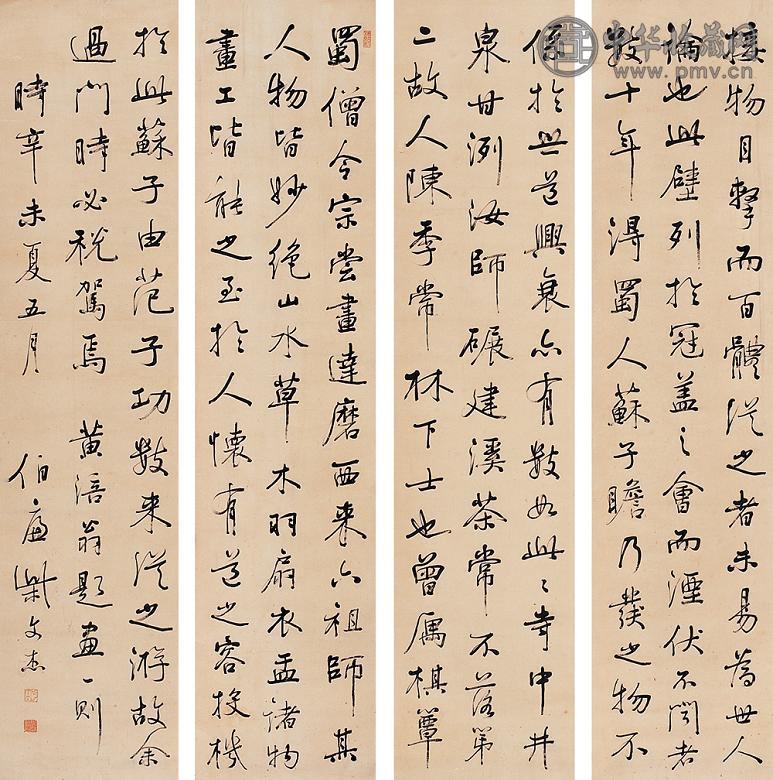 蜀僧令宗嘗畫達磨西來六祖師其
人物皆妙絕山水草木羽扇衣盂諸物
畫工皆能之至於人懷有道之容投機
接物目擊而百體從之者未易為世人
論也此壁列於冠蓋之會而湮伏不聞者
數十年得蜀人蘇子瞻乃發之物不
係於世道興衰亦有數如此〻寺中井
泉甘洌汝師碾建溪茶常不落第
二故人陳季常林下士也曾屬棋簟
於此蘇子由范子功數來從之游故余
過門時必稅駕焉 黃涪翁題畫一則
時辛未夏五月 伯廉柴文杰
中华收藏
www.pmv.cn